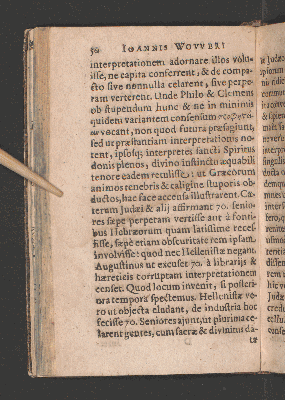 50 IOANNIS WOVVERI
interpretationem adornare illos volu-
isse, ne capita conferrent, & de compa-
cto sive nonnulla celarent, sive perpe-
ram verterent. Unde Philo & Clemens
ob stupendum hunc & ne in minimis
quidem variantem consensum
vocant, non quod futura præsagiunt,
sed ut præstantiam interpretationis no-
tent, ipsosq; interpretes sancti Spiritus
donis plenos, divino instinctu æquabili
tenore eadem retulisse: ut Græcorum
animos tenebris & caligine stuporis ob-
ductos, hac face accensa illustravent. Cæ-
terum Judæi & alij affirmant 70. senio-
res sæpe perpetam vertisse aut à fonti-
bus Hebræorum quam latissime reces-
sisse, sæpè etiam obscuritate rem ipsam
involvisse: quod nec Hellenistæ negant.
Augustinus ut excuset 70. à librarijs &
hæreticis corruptam interpretationem
censet. Quod locum invenit, si posteri-
ora tempora spectemus. Hellenistæ ve-
ro ut objecta eludant, de industria hoc
fecisse 70. Seniores ajunt, ut plurima ce-
larent gentes, cum sacræ & divinitus da-
tæ